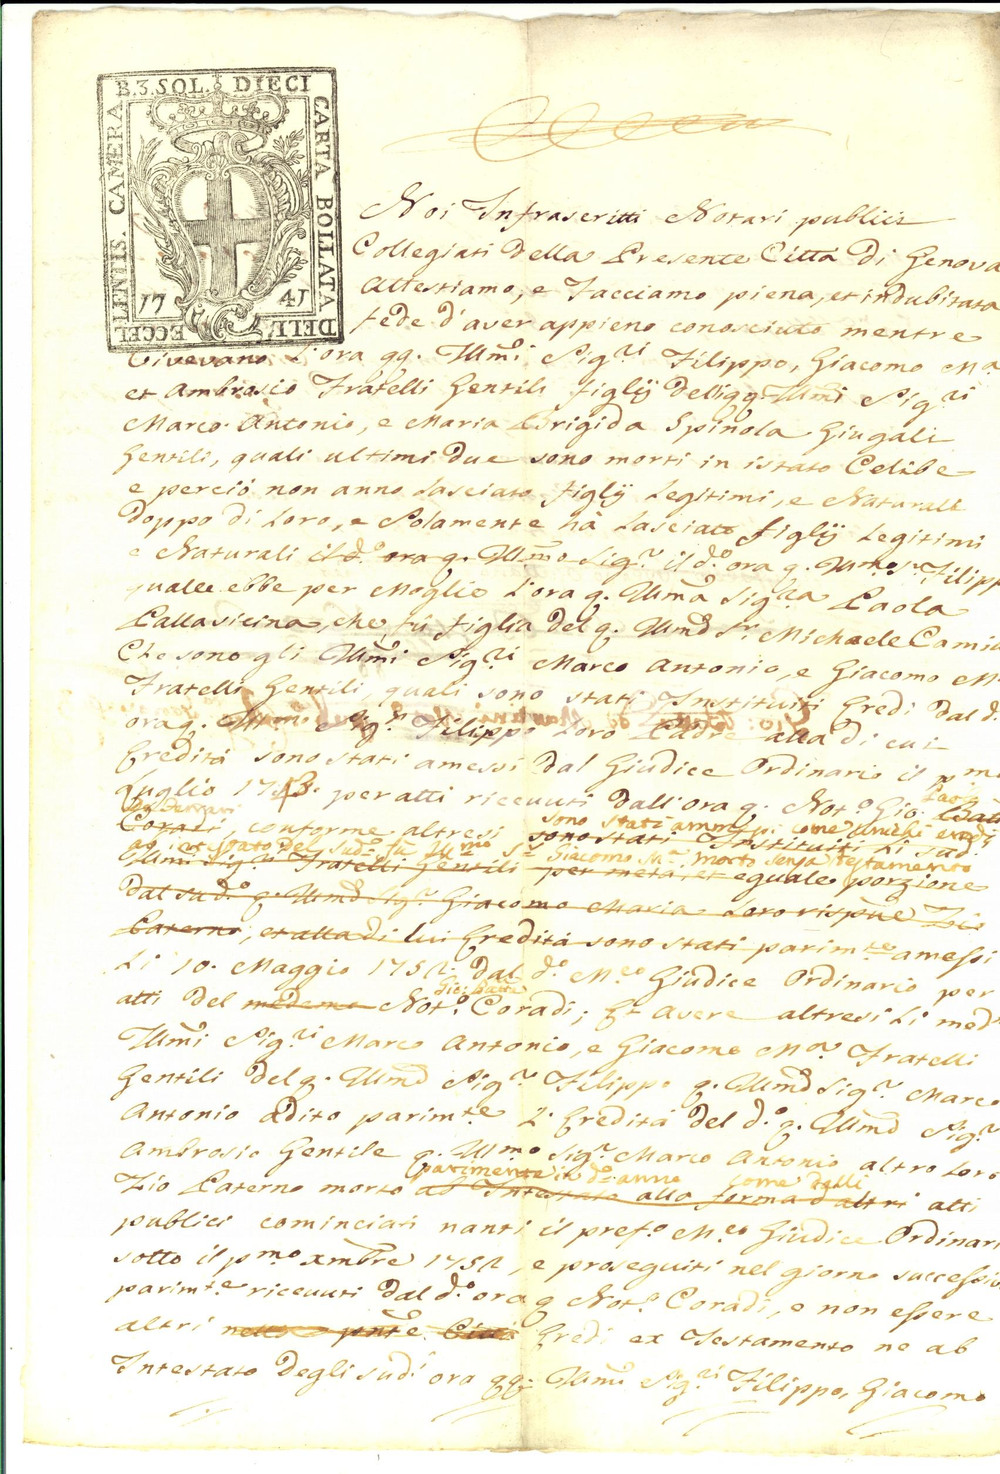 B.3.SOL. DIECI CARTA BOLLATA DELL' ECCELLENTIS. CAMERA
1741
Noi Infrascritti Notari publici
Collegiati della Presente Città di Genova
Attestiamo, e Facciamo piena, et indubitata
fede d'aver appieno conosciuto mentre
vivevano l'ora qq. Illmi Sig.ri Filippo, Giacomo M.a
et Ambrosio Fratelli Gentili figlij delli qq. Illmi Sig.ri
Marco Antonio, e Maria Brigida Spinola Giugali
Gentili, quali ultimi due sono morti in istato Celibe
e perciò non anno lasciato figlij Legitimi, e Naturali
doppo di Loro, e Solamente hà Lasciato figlij Legitimi
e Naturali il d.o ora q. Illmo Sig.r il d.o ora q. Illmo Sr. Filippo
quale ebbe per Moglie l'ora q. Illma Sig.ra Paola
Pallavicina, che fù figlia del q. Illmo Sr. Michaele Camillo
Che sono gli Illmi Sig.ri Marco Antonio, e Giacomo M.a
Fratelli Gentili, quali sono stati Instituiti Eredi dal d.o
ora q. Illmo Sig.r Filippo Loro Padre alla di cui
Eredità sono stati amessi dal Giudice Ordinario il pmo
Luglio 1713. per atti ricevuti dall'ora q. Not.o Gio.
De Ferrari sono stati ammessi come unichi eredi
Coradi, conforme altresi sono stati Instituiti li sud.i
ab intestato del sud.o fù Illmo Sr. Giacomo M.a morto senza testamento
Illmi Sig.ri Fratelli Gentili per metà, et eguale porzione
dal sud.o q. Illmo Sig.r Giacomo Maria Loro rispne Zio
Paterno, et alla di lui Eredità sono stati parim.te amessi
Li 10. Maggio 1752. dal d.o M.co Giudice Ordinario per
Gio: Batta
atti del medemo Not.o Coradi; Et avere altresi Li med.i
Illmi Sig.ri Marco Antonio, e Giacomo M.a Fratelli
Gentili del q. Illmo Sig.r Filippo q. Illmo Sig.r Marco
Antonio adito parim.te l'Eredità del d.o q. Illmo Sig.r
Ambrosio Gentile q. Illmo Sig.r Marco Antonio altro Loro
parimente il d.o anno come agli
Zio Paterno morto ab Intestato alla forma d'altri atti
publici cominciati nanti il pref.o M.co Giudice Ordinario
sotto il pmo xmbre 1752, e proseguiti nel giorno successivo
parim.te ricevuti dal d.o ora q Not.o Coradi, e non essere
altri nella pnte Città Eredi ex Testamento ne ab
Intestato degli sud.i ora qq. Illmi Sig.ri Filippo, Giacomo